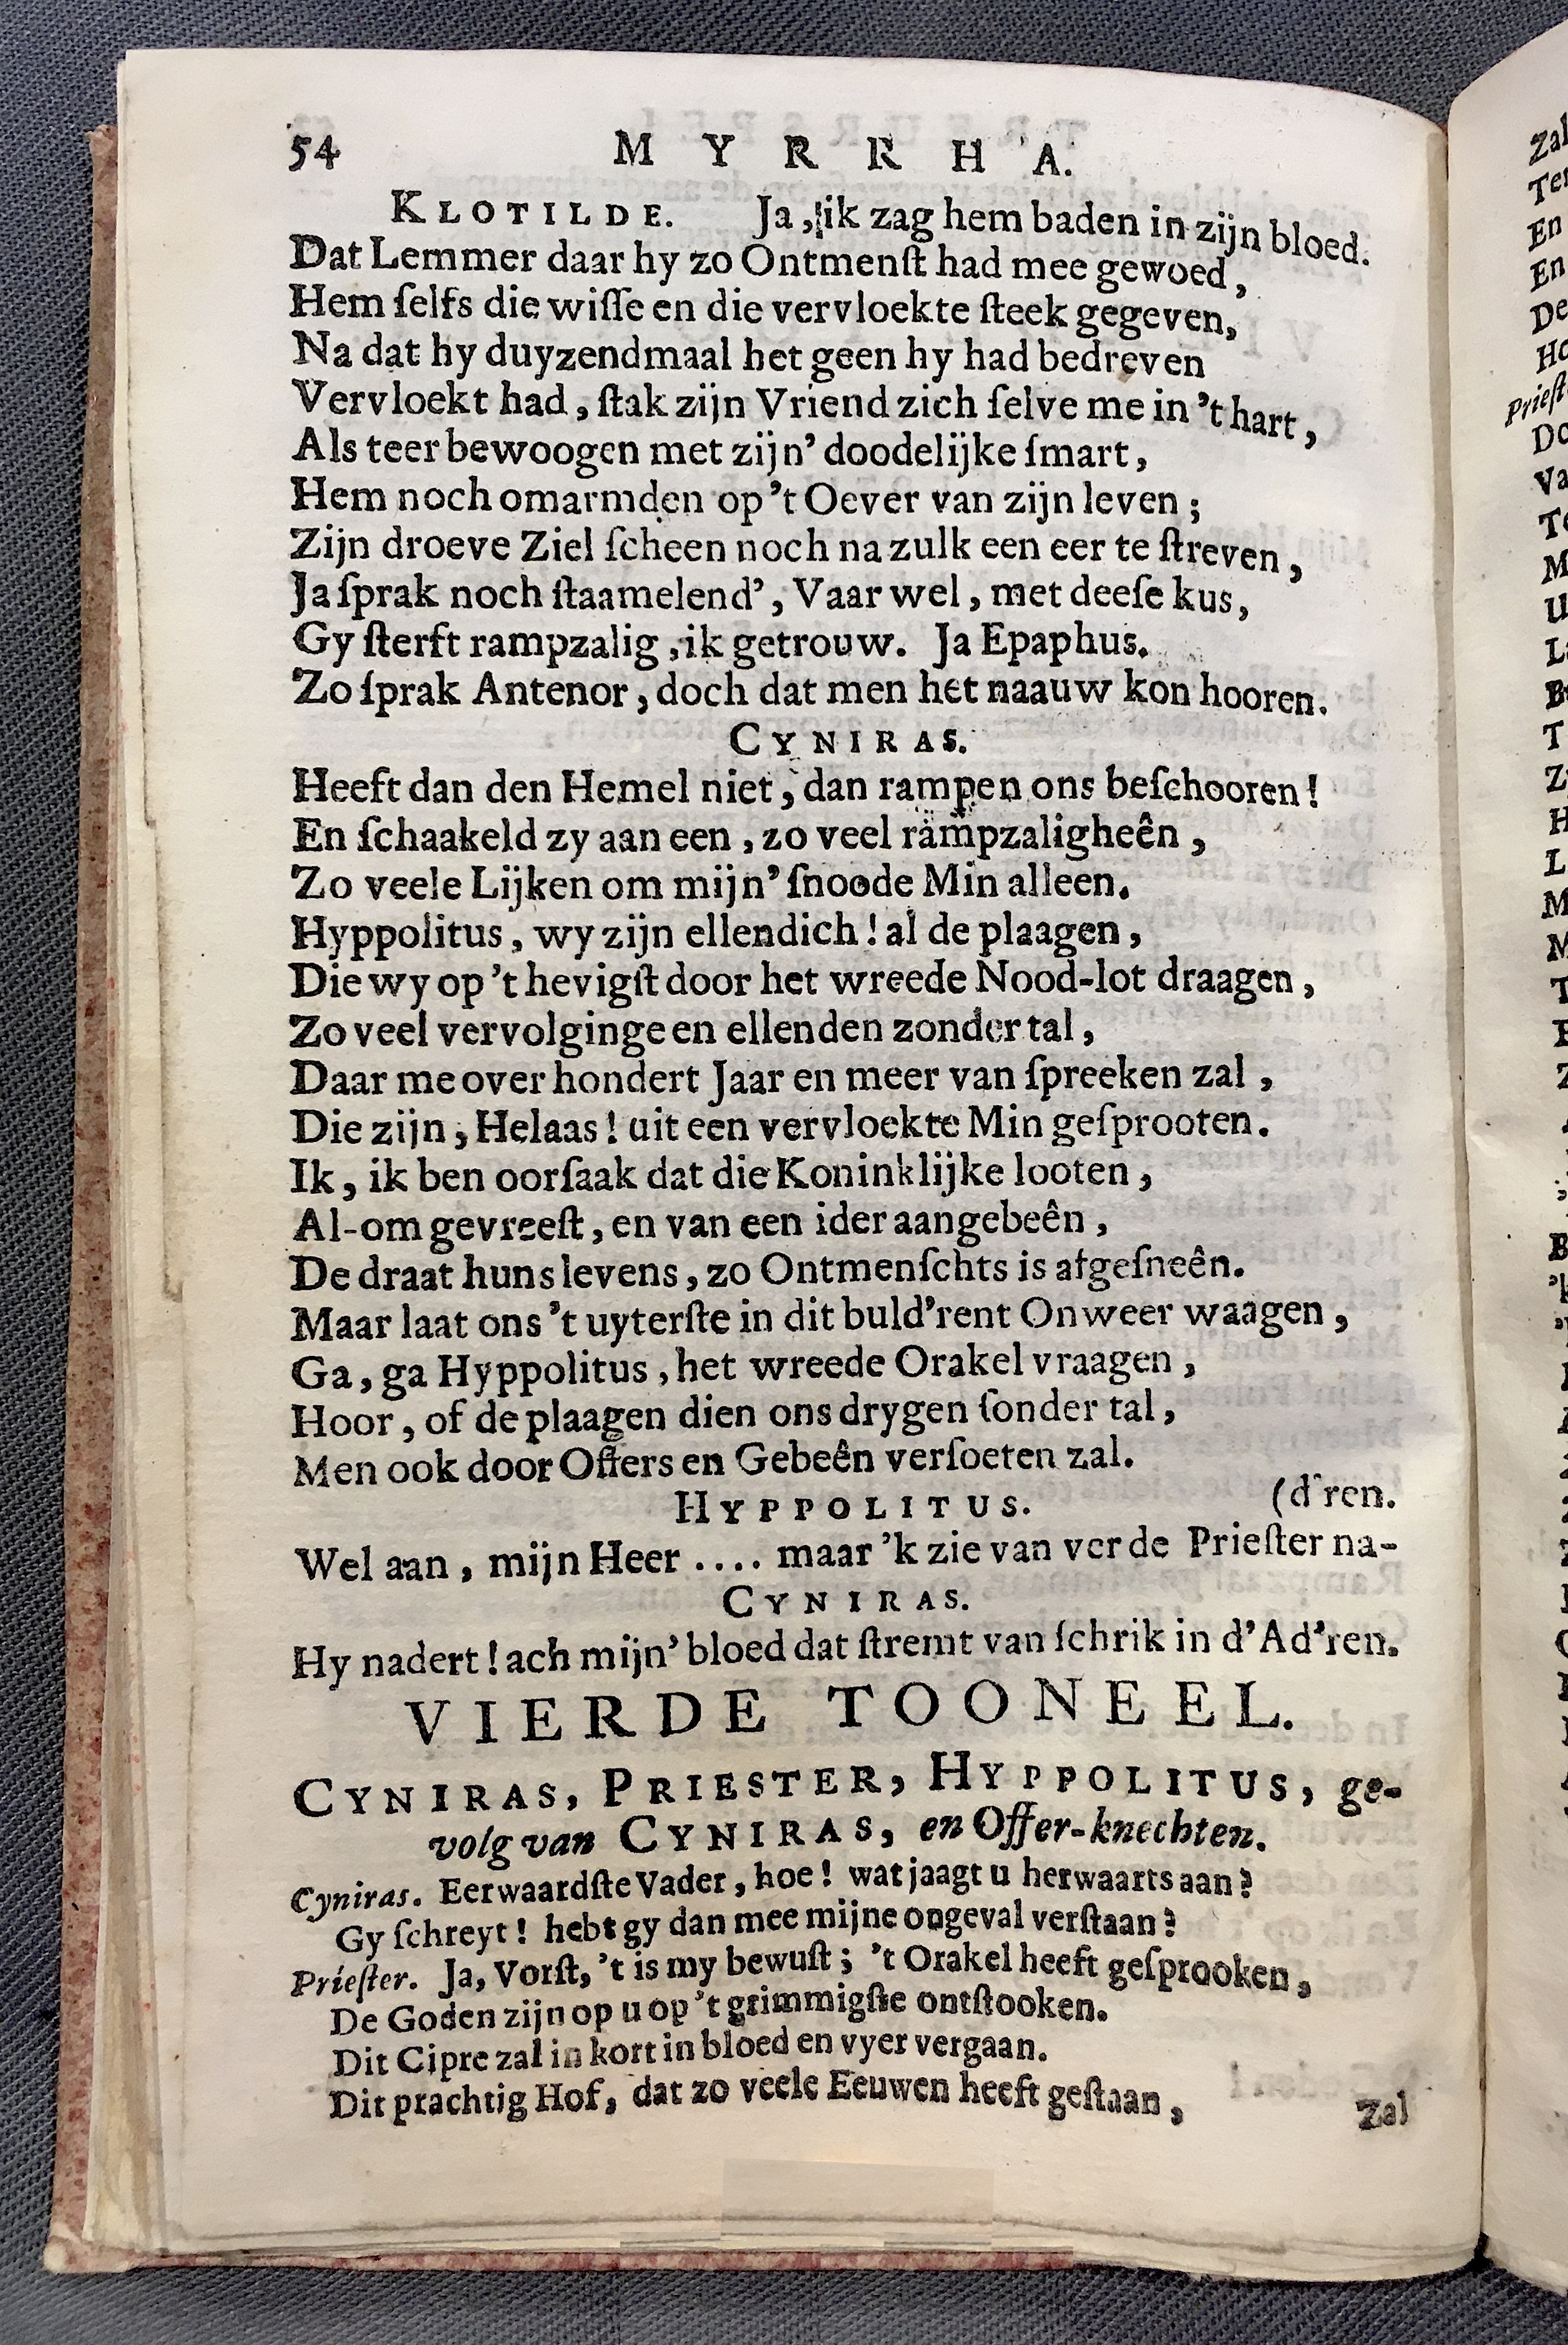 54 MYRRHA.
KLOTILDE. Ja, ik zag hem baden in zijn bloed.
Dat Lemmer daar hy zo Ontmenſt had mee gewoed,
Hem ſelfs die wiſſe en die vervloekte ſteek gegeven,
Na dat hy duyzendmaal het geen hy had bedreven
Vervloekt had, ſtak zijn Vriend zich ſelve me in 't hart,
Als teer bewoogen met zijn' doodelijke ſmart,
Hem noch omarmden op 't Oever van zijn leven;
Zijn droeve Ziel ſcheen noch na zulk een eer te ſtreven,
Ja ſprak noch ſtaamelend', Vaar wel, met deeſe kus,
Gy ſterft rampzalig, ik getrouw. Ja Epaphus.
Zo ſprak Antenor, doch dat men het naauw kon hooren.
CYNIRAS.
Heeft dan den Hemel niet, dan rampen ons beſchooren!
En ſchaakeld zy aan een, zo veel rampzaligheên,
Zo veele Lijken om mijn' ſnoode Min alleen.
Hyppolitus, wy zijn ellendich! al de plaagen,
Die wy op 't hevigſt door het wreede Nood-lot draagen,
Zo veel vervolginge en ellenden zonder tal,
Daar me over hondert Jaar en meer van ſpreeken zal,
Die zijn, Helaas! uit een vervloekte Min geſprooten.
Ik, ik ben oorſaak dat die Koninklijke looten,
Al-om gevreeſt, en van een ider aangebeên,
De draat huns levens, zo Ontmenſchts is afgeſneên.
Maar laat ons 't uyterſte in dit buld'rent Onweer waagen,
Ga, ga Hyppolitus, het wreede Orakel vraagen,
Hoor, of de plaagen dien ons drygen ſonder tal,
Men ook door Offers en Gebeên verſoeten zal.
HYPPOLITUS. (d'ren.
Wel aan, mijn Heer .... maar 'k zie van ver de Prieſter na-
CYNIRAS.
Hy nadert! ach mijn' bloed dat ſtremt van ſchrik in d'Ad'ren.
VIERDE TOONEEL.
CYNIRAS, PRIESTER, HYPPOLITUS, ge-
volg van CYNIRAS, en Offer-knechten.
Cyniras. Eerwaardſte Vader, hoe! wat jaagt u herwaarts aan?
Gy ſchreyt! hebt gy dan mee mijne ongeval verſtaan?
Prieſter. Ja, Vorſt, 't is my bewuſt; 't Orakel heeft geſprooken,
De Goden zijn op u op 't grimmigſte ontſtooken.
Dit Cipre zal in kort in bloed en vyer vergaan.
Dit prachtig Hof, dat zo veele Eeuwen heeft geſtaan,
Zal